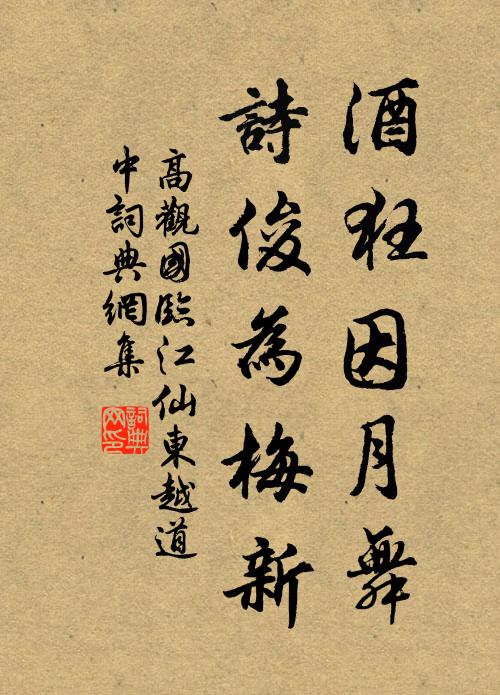 酒狂因月舞
詩俊為梅新
高觀國臨江仙東越道
中詞典網集
詞典網印